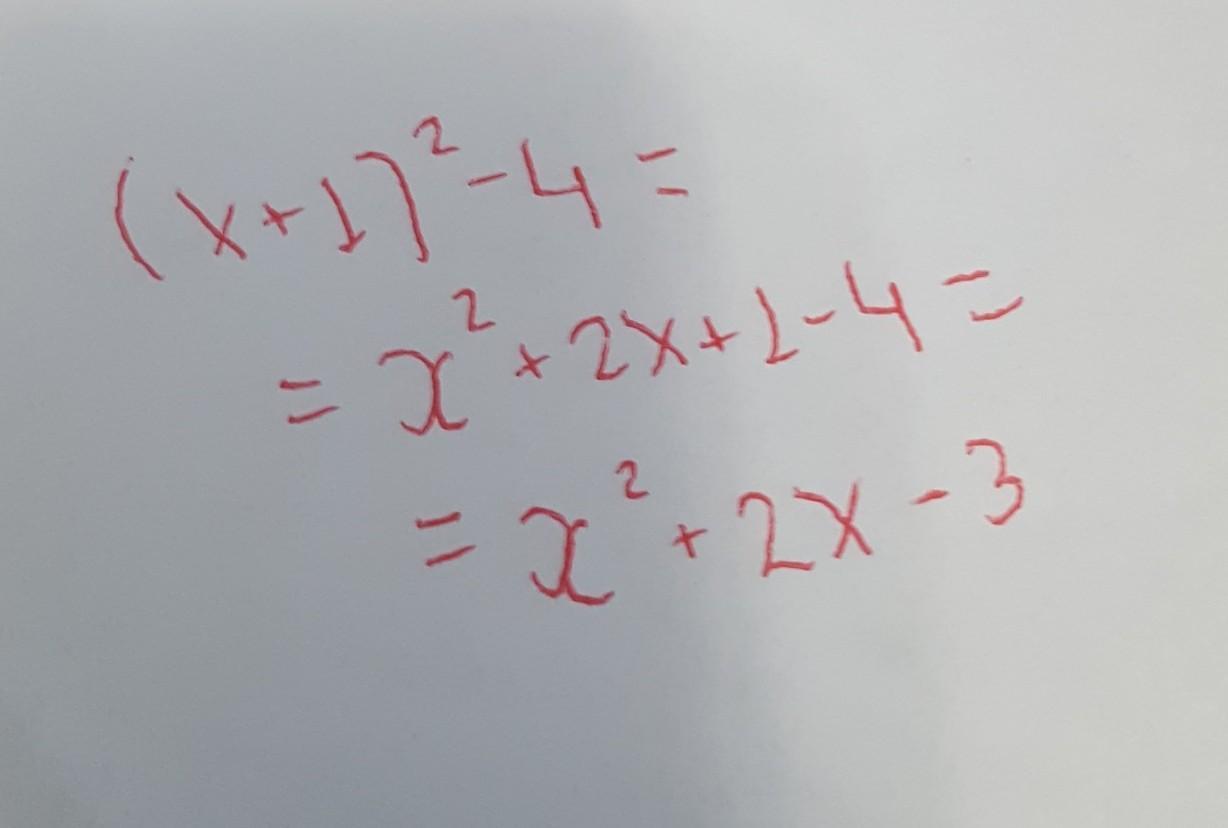 (x+1)² - 4 =
= x² + 2x + 1 - 4 =
= x² + 2x - 3